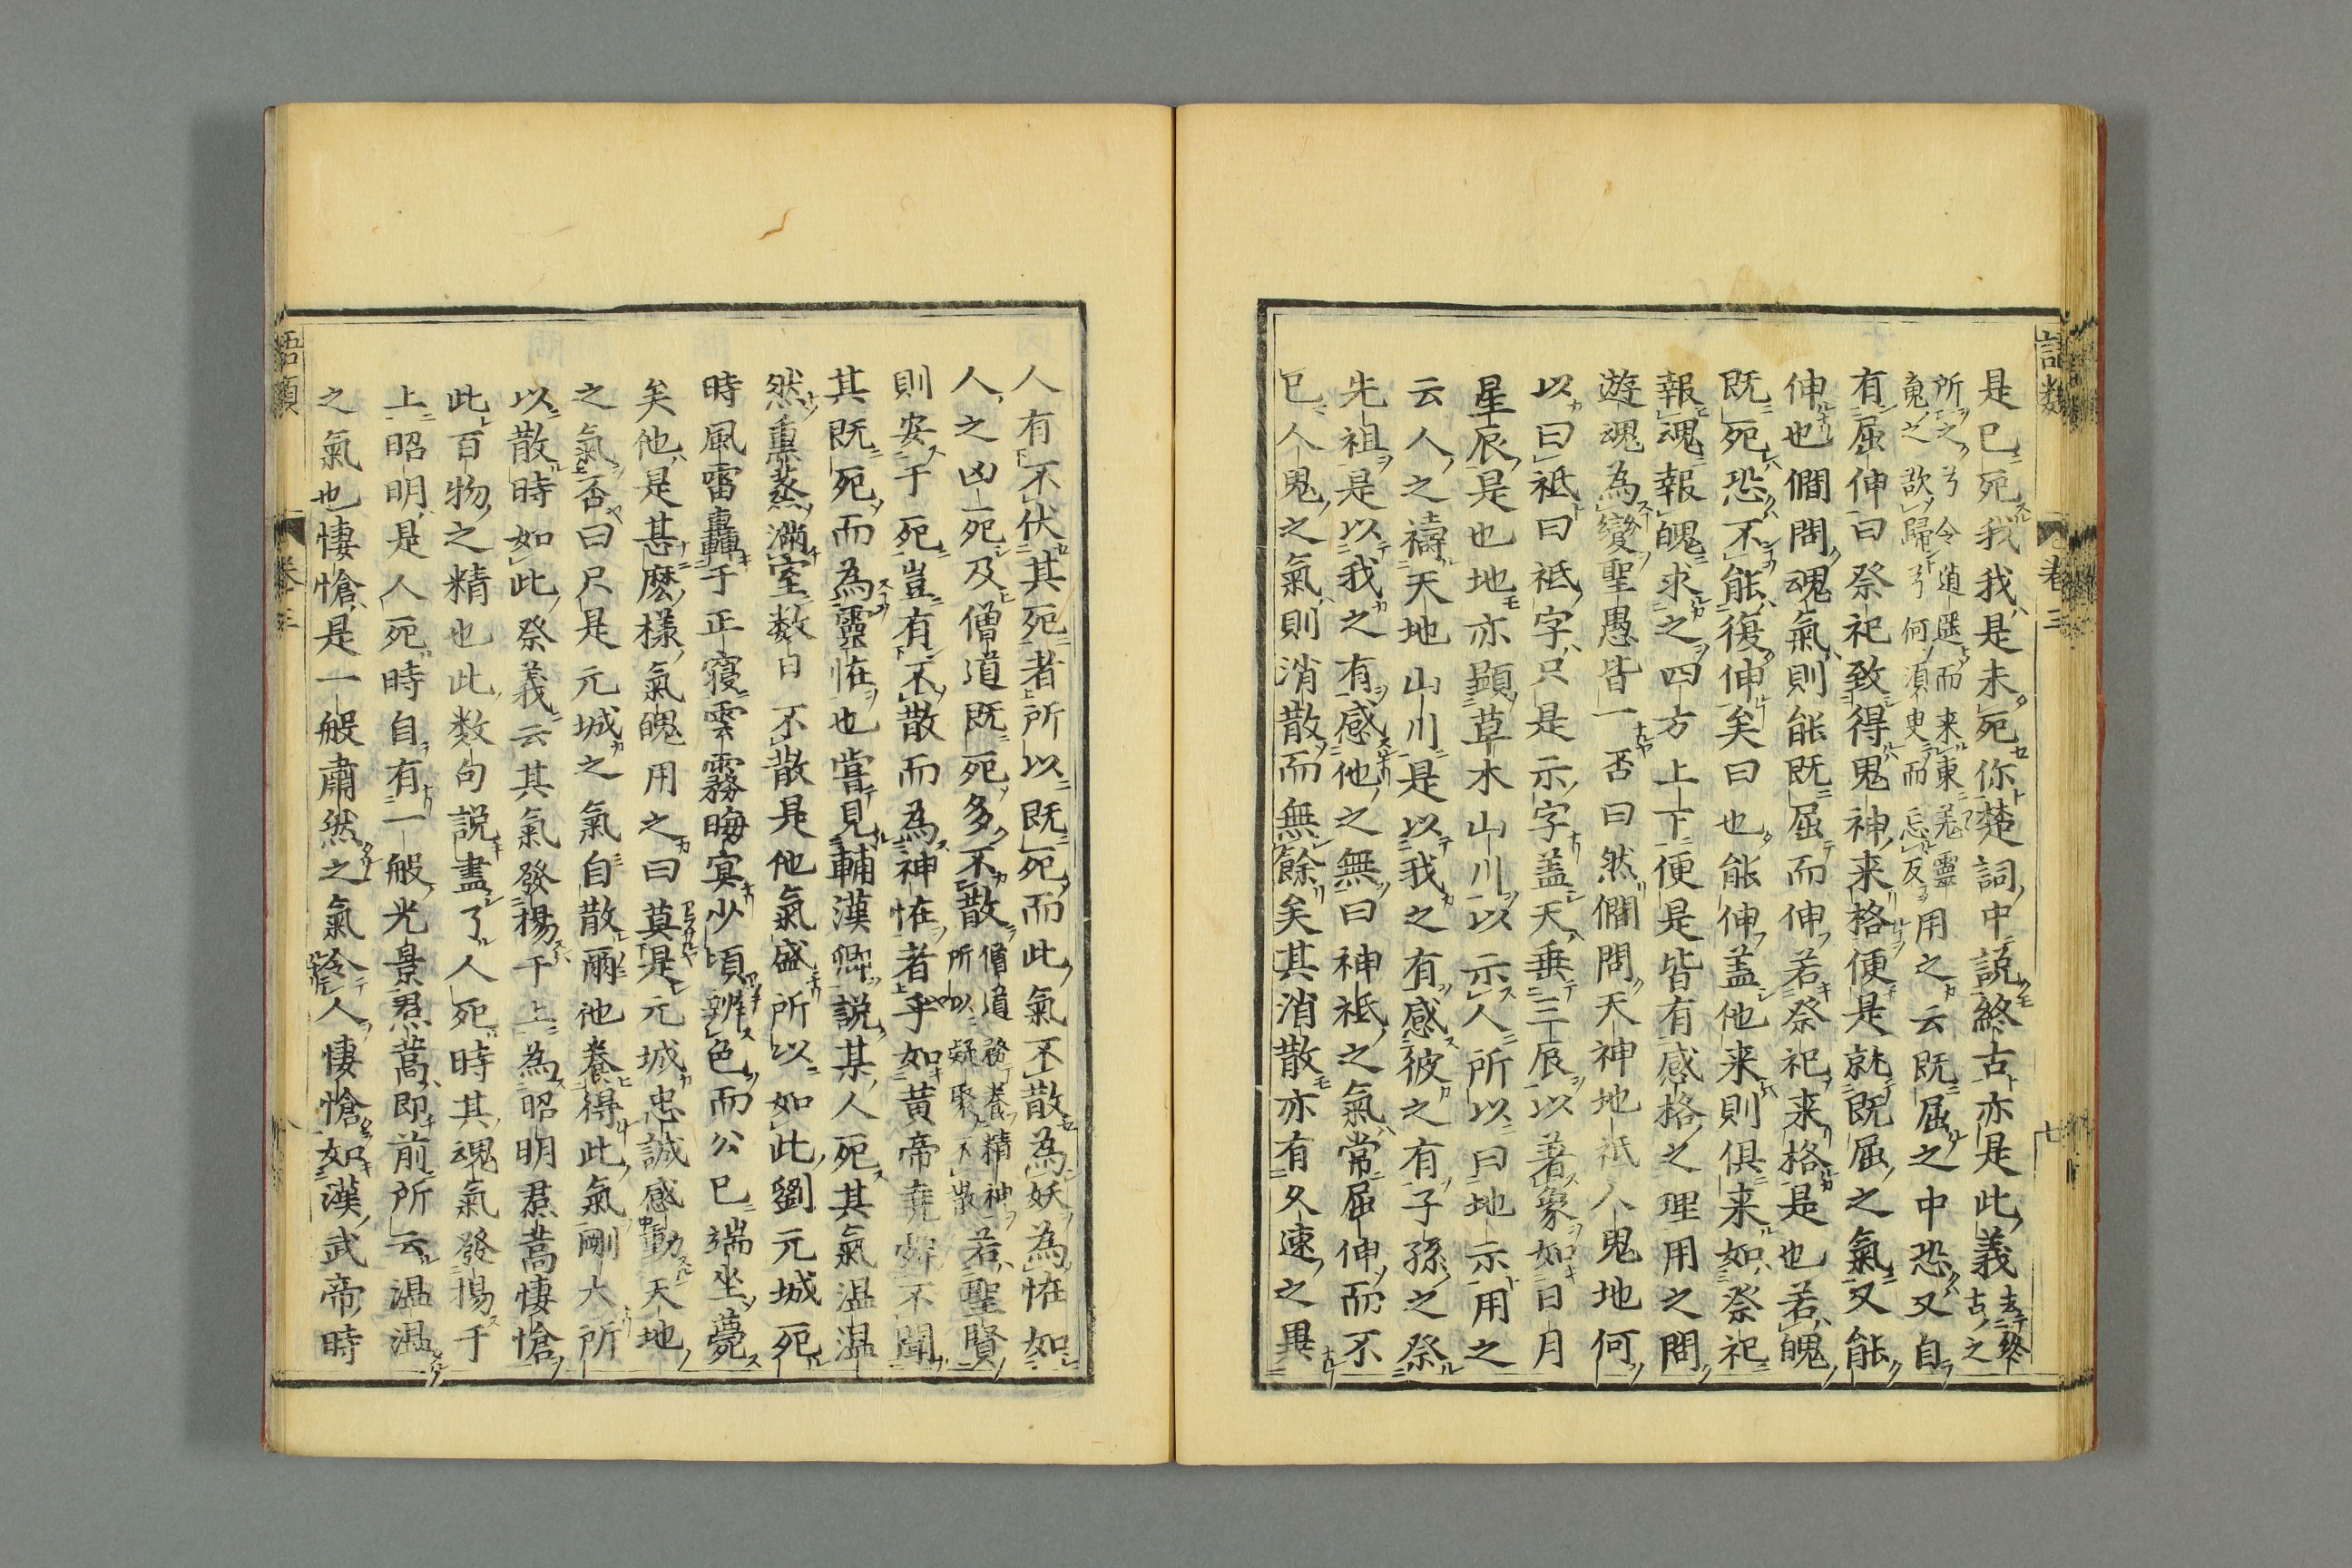 是已死我我是未死你楚詞中説終古亦是此義去終古之
所之兮今逍遥而来東羗靈
䰟之欲歸兮何須臾而忘反用之云既屈之中恐又自
有屈伸曰祭祀致得鬼神来格便是就既屈之氣又能
伸也僩問魂氣則能既屈而伸若祭祀来格是也若魄
既死恐不能復伸矣曰也能伸盖他来則俱来如祭祀
報魂報魄求之四方上下便是皆有感格之理用之問
遊魂為變聖愚皆一否曰然僩問天神地祇人鬼地何
以曰祇曰祇字只是示字盖天垂三辰以著象如日月
星辰是也地亦顯草木山川以示人所以曰地示用之
云人之禱天地山川是以我之有感彼之有子孫之祭
先祖是以我之有感他之無曰神祇之氣常屈伸而不
已人鬼之氣則消散而無餘矣其消散亦有久速之異
人有不伏其死者所以既死而此氣不散為妖為恠如
人之凶死及僧道既死多不散僧道務養精神
所以凝聚不散若聖賢
則安于死豈有不散而為神恠者乎如黄帝堯舜不聞
其既死而為靈恠也嘗見輔漢卿説某人死其氣温温
然熏蒸滿室数日不散是他氣盛所以如此劉元城死
時風雷轟于正寢雲霧晦冥少頃辨色而公已端坐薨
矣他是甚麽様氣魄用之曰莫是元城忠誠感動天地
之氣否曰只是元城之氣自散爾他養得此氣剛大所
以散時如此祭義云其氣發揚于上為昭明焄蒿悽愴
此百物之精也此数句説盡了人死時其魂氣發揚于
上昭明是人死時自有一般光景焄蒿即前所云温温
之氣也悽愴是一般肅然之氣令人悽愴如漢武帝時
卷三